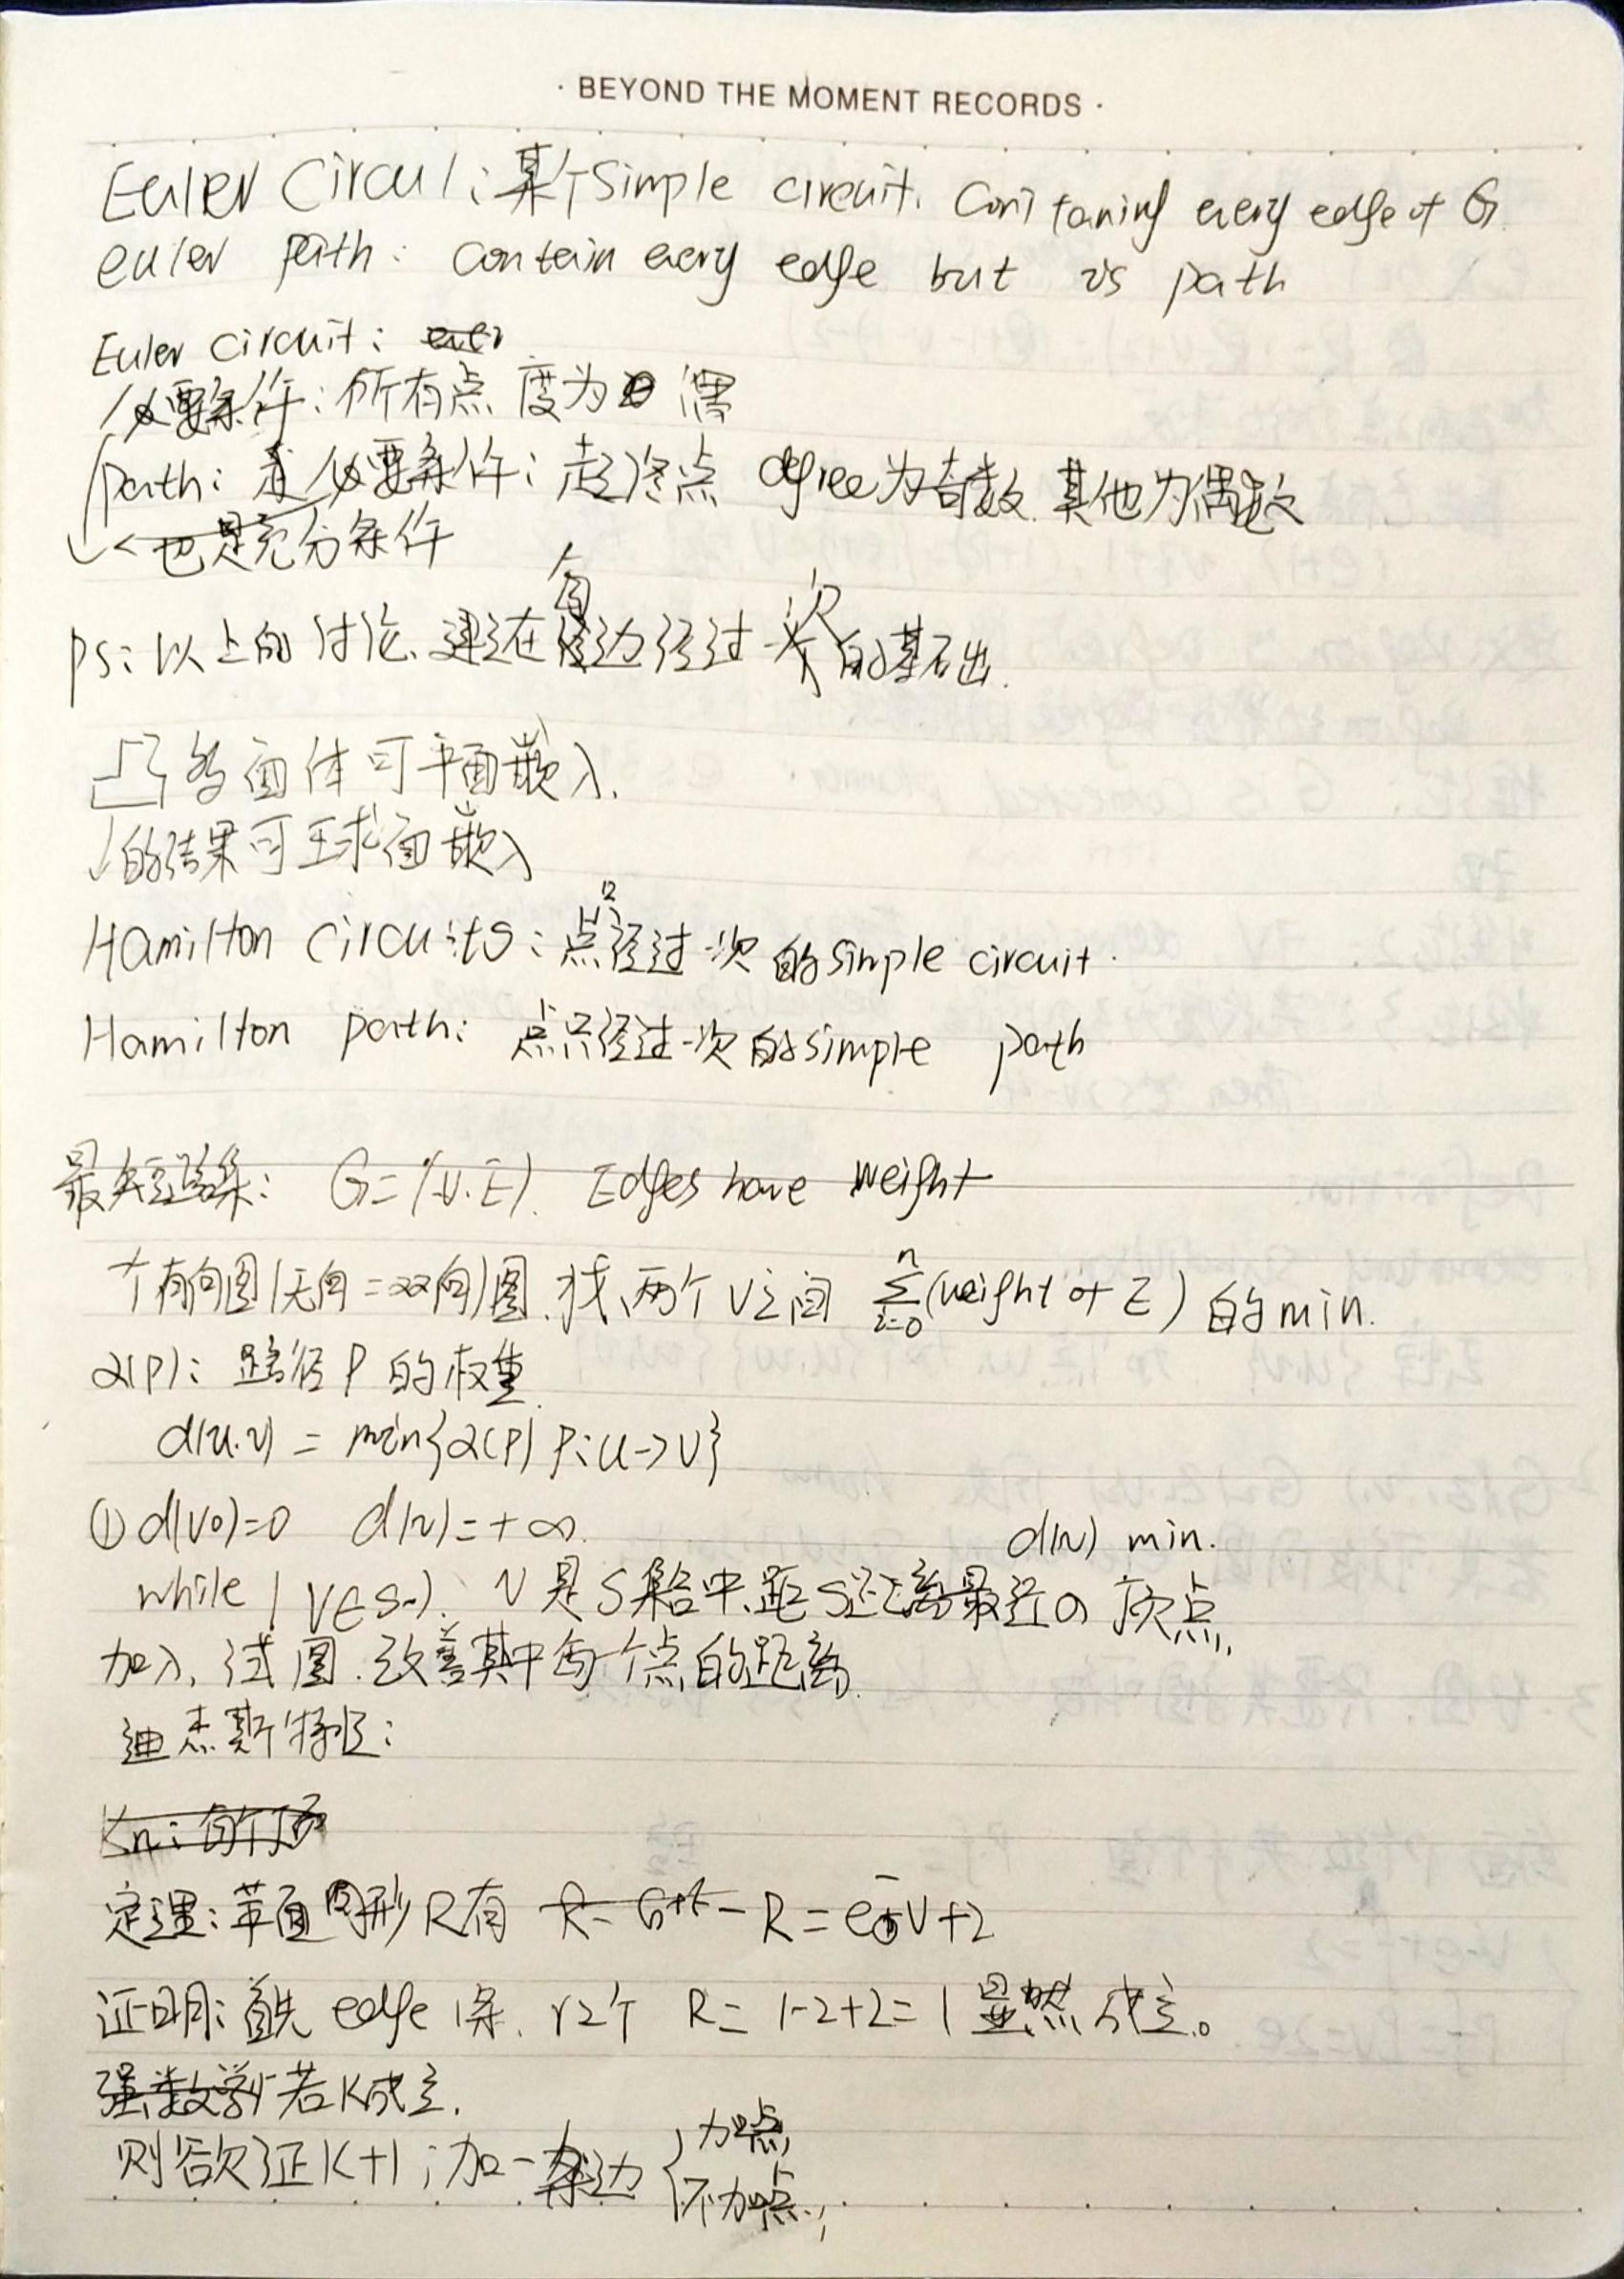 · BEYOND THE MOMENT RECORDS ·
Euler Circui: 某个simple circuit. Containing every edge of G
euler path: contain every edge but is path
Euler circuit:
必要条件: 所有点 度为 偶
path: 必要条件: 起终点 degree为奇数 其他为偶数
也是充分条件
ps: 以上的讨论, 建立在每边经过一次的基础.
凸多面体可平面嵌入.
的结果可球面嵌入
Hamilton circuits: 点只经过一次的simple circuit.
Hamilton path: 点只经过一次的simple path
最短路径: G=(V.E). Edges have weight
个有向图(无向=双向)图, 找两个V之间 n∑i=0(weight of E) 的min.
α(P): 路径P的权重
d(u.v) = min{α(P) P:u->v}
① d(v0)=0 d(v)=+∞.
d(v) min.
while(V∈S~). v是S集合中, 距S距离最近の顶点,
加入, 试图, 改善其中每一个点的距离.
迪杰斯特拉:
定理: 平面图形R有 R=e-V+2
证明: 首先edge 1条, V2个 R=1-2+2=1显然成立。
若K成立.
则欲证K+1; 加一条边 { 加点
不加点;